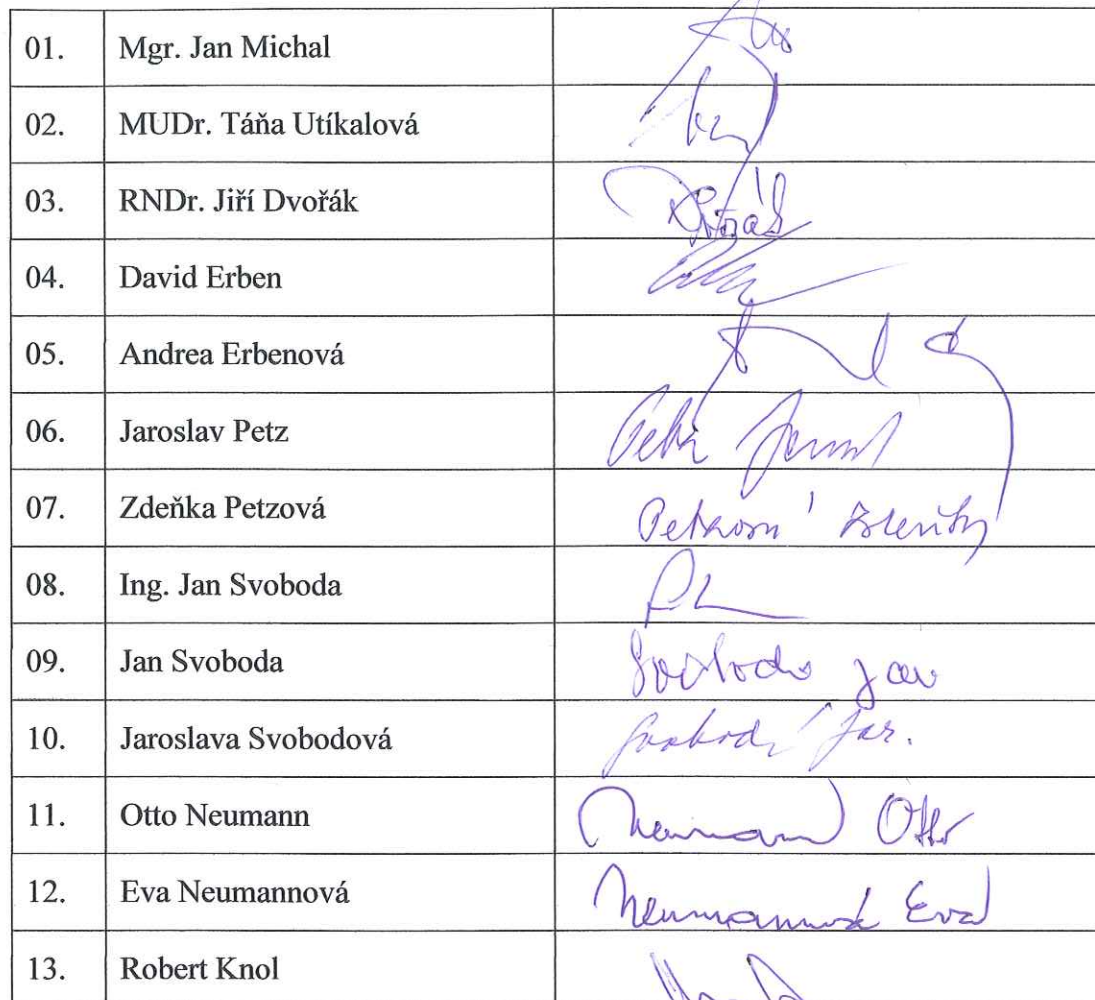 01. Mgr. Jan Michal
02. MUDr. Táňa Utíkalová
03. RNDr. Jiří Dvořák Dvořák
04. David Erben
05. Andrea Erbenová
06. Jaroslav Petz
07. Zdeňka Petzová
08. Ing. Jan Svoboda
09. Jan Svoboda Svoboda Jan
10. Jaroslava Svobodová Jar.
11. Otto Neumann Neumann Otto
12. Eva Neumannová Eva
13. Robert Knol